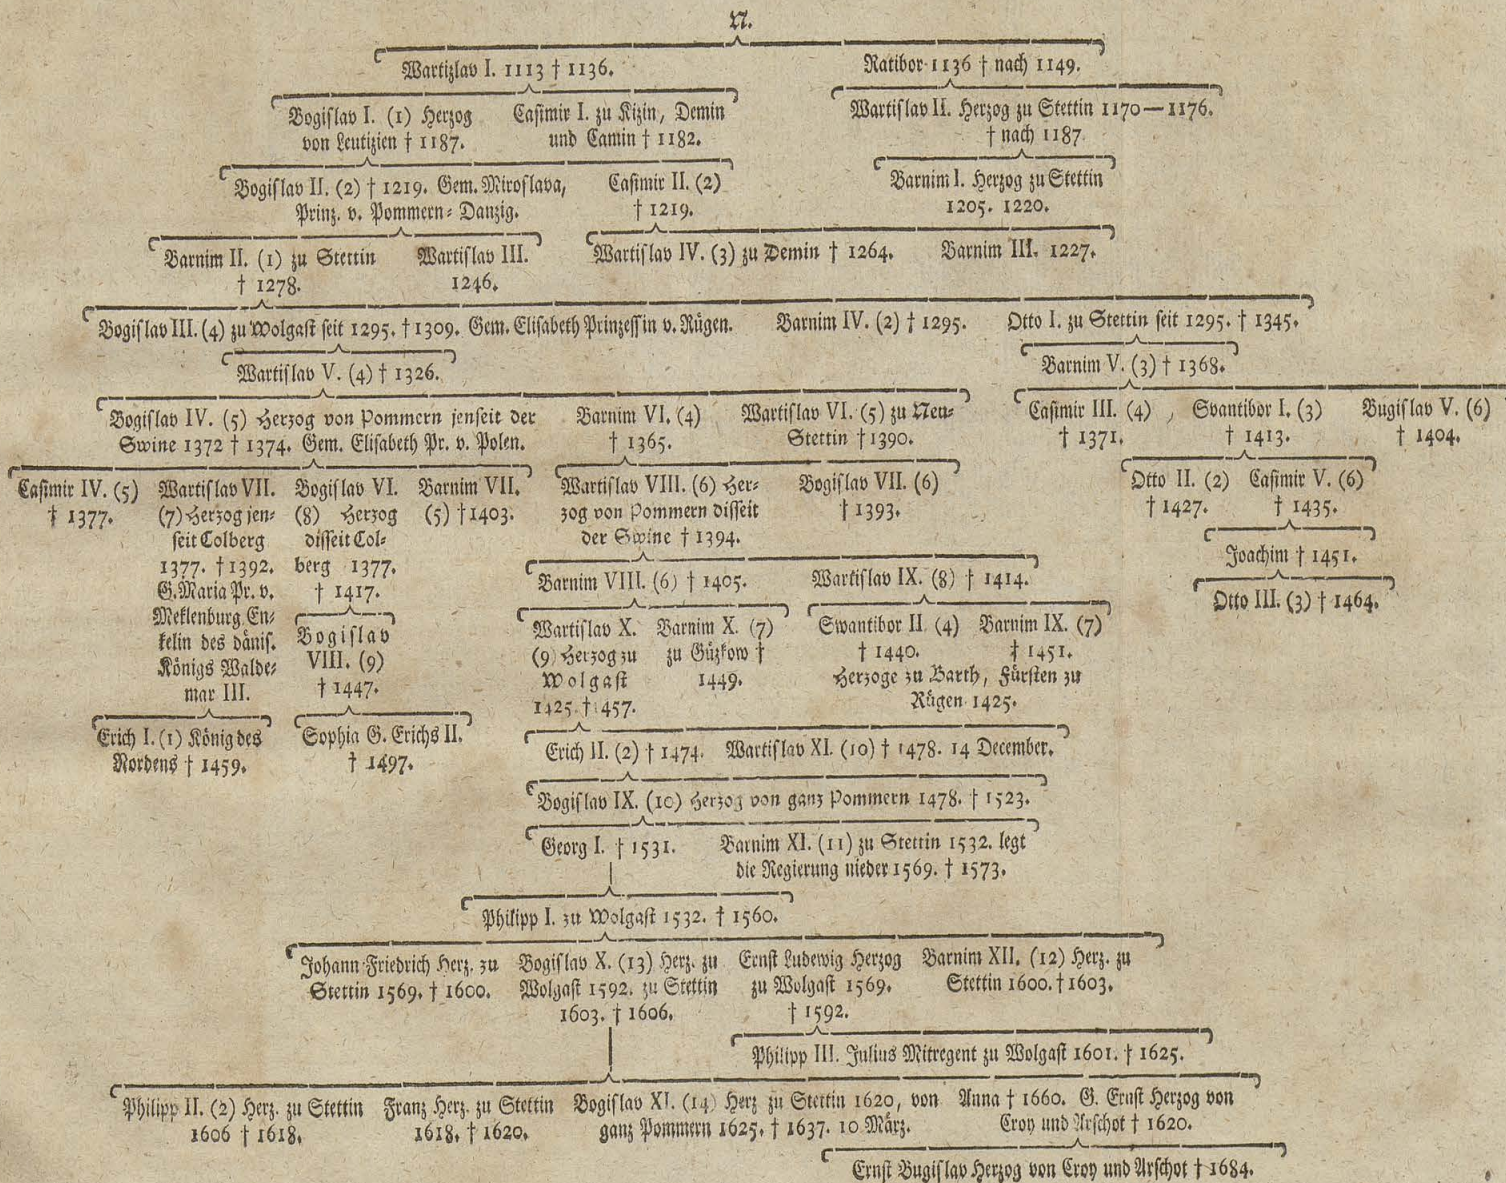 N.
Wartizlav I. 1113 † 1136.
Ratibor 1136 † nach 1149.
Bogislav I. (1) Herzog
von Leutizien † 1187.
Casimir I. zu Kizin, Demin
und Camin † 1182.
Wartislav II. Herzog zu Stettin 1170—1176.
† nach 1187
Bogislav II. (2) † 1219. Gem. Miroslava,
Prinz. v. Pommern-Danzig.
Casimir II. (2)
† 1219.
Barnim I. Herzog zu Stettin
1205. 1220.
Barnim II. (1) zu Stettin
† 1278.
Wartislav III.
1246.
Wartislav IV. (3) zu Demin † 1264.
Barnim III. 1227.
Bogislav III. (4) zu Wolgast seit 1295. † 1309. Gem. Elisabeth Prinzessin v. Rügen.
Barnim IV. (2) † 1295.
Otto I. zu Stettin seit 1295. † 1345.
Wartislav V. (4) † 1326.
Barnim V. (3) † 1368.
Bogislav IV. (5) Herzog von Pommern jenseit der
Swine 1372 † 1374. Gem. Elisabeth Pr. v. Polen.
Barnim VI. (4)
† 1365.
Wartislav VI. (5) zu Neu-
Stettin † 1390.
Casimir III. (4)
† 1371.
Svantibor I. (3)
† 1413.
Bugislav V. (6)
† 1404.
Casimir IV. (5)
† 1377.
Wartislav VII.
(7) Herzog jen-
seit Colberg
1377. † 1392.
G. Maria Pr. v.
Meklenburg En-
kelin des dänis.
Königs Walde-
mar III.
Bogislav VI.
(8) Herzog
disseit Col-
berg 1377.
† 1417.
Barnim VII.
(5) † 1403.
Wartislav VIII. (6) Her-
zog von Pommern disseit
der Swine † 1394.
Bogislav VII. (6)
† 1393.
Otto II. (2)
† 1427.
Casimir V. (6)
† 1435.
Joachim † 1451.
Otto III. (3) † 1464.
Barnim VIII. (6) † 1405.
Wartislav IX. (8) † 1414.
Bogislav
VIII. (9)
† 1447.
Wartislav X.
(9) Herzog zu
Wolgast
1425. † 1457.
Barnim X. (7)
zu Güzkow †
1449.
Swantibor II. (4)
† 1440.
Barnim IX. (7)
‡ 1451.
Herzoge zu Barth, Fürsten zu
Rügen 1425.
Erich I. (1) König des
Nordens † 1459.
Sophia G. Erichs II.
† 1497.
Erich II. (2) † 1474.
Wartislav XI. (10) † 1478. 14 December.
Bogislav IX. (10) Herzog von ganz Pommern 1478. † 1523.
Georg I. † 1531.
Barnim XI. (11) zu Stettin 1532. legt
die Regierung nieder 1569. † 1573.
Philipp I. zu Wolgast 1532. † 1560.
Johann Friedrich Herz. zu
Stettin 1569. † 1600.
Bogislav X. (13) Herz. zu
Wolgast 1592. zu Stettin
1603. † 1606.
Ernst Ludewig Herzog
zu Wolgast 1569.
† 1592.
Barnim XII. (12) Herz. zu
Stettin 1600. † 1603.
Philipp III. Julius Mitregent zu Wolgast 1601. † 1625.
Philipp II. (2) Herz. zu Stettin
1606 † 1618.
Franz Herz. zu Stettin
1618. † 1620.
Bogislav XI. (14) Herz zu Stettin 1620, von
ganz Pommern 1625. † 1637. 10 März.
Anna † 1660. G. Ernst Herzog von
Croy und Arschot † 1620.
Ernst Bugislav Herzog von Croy und Arschot † 1684.